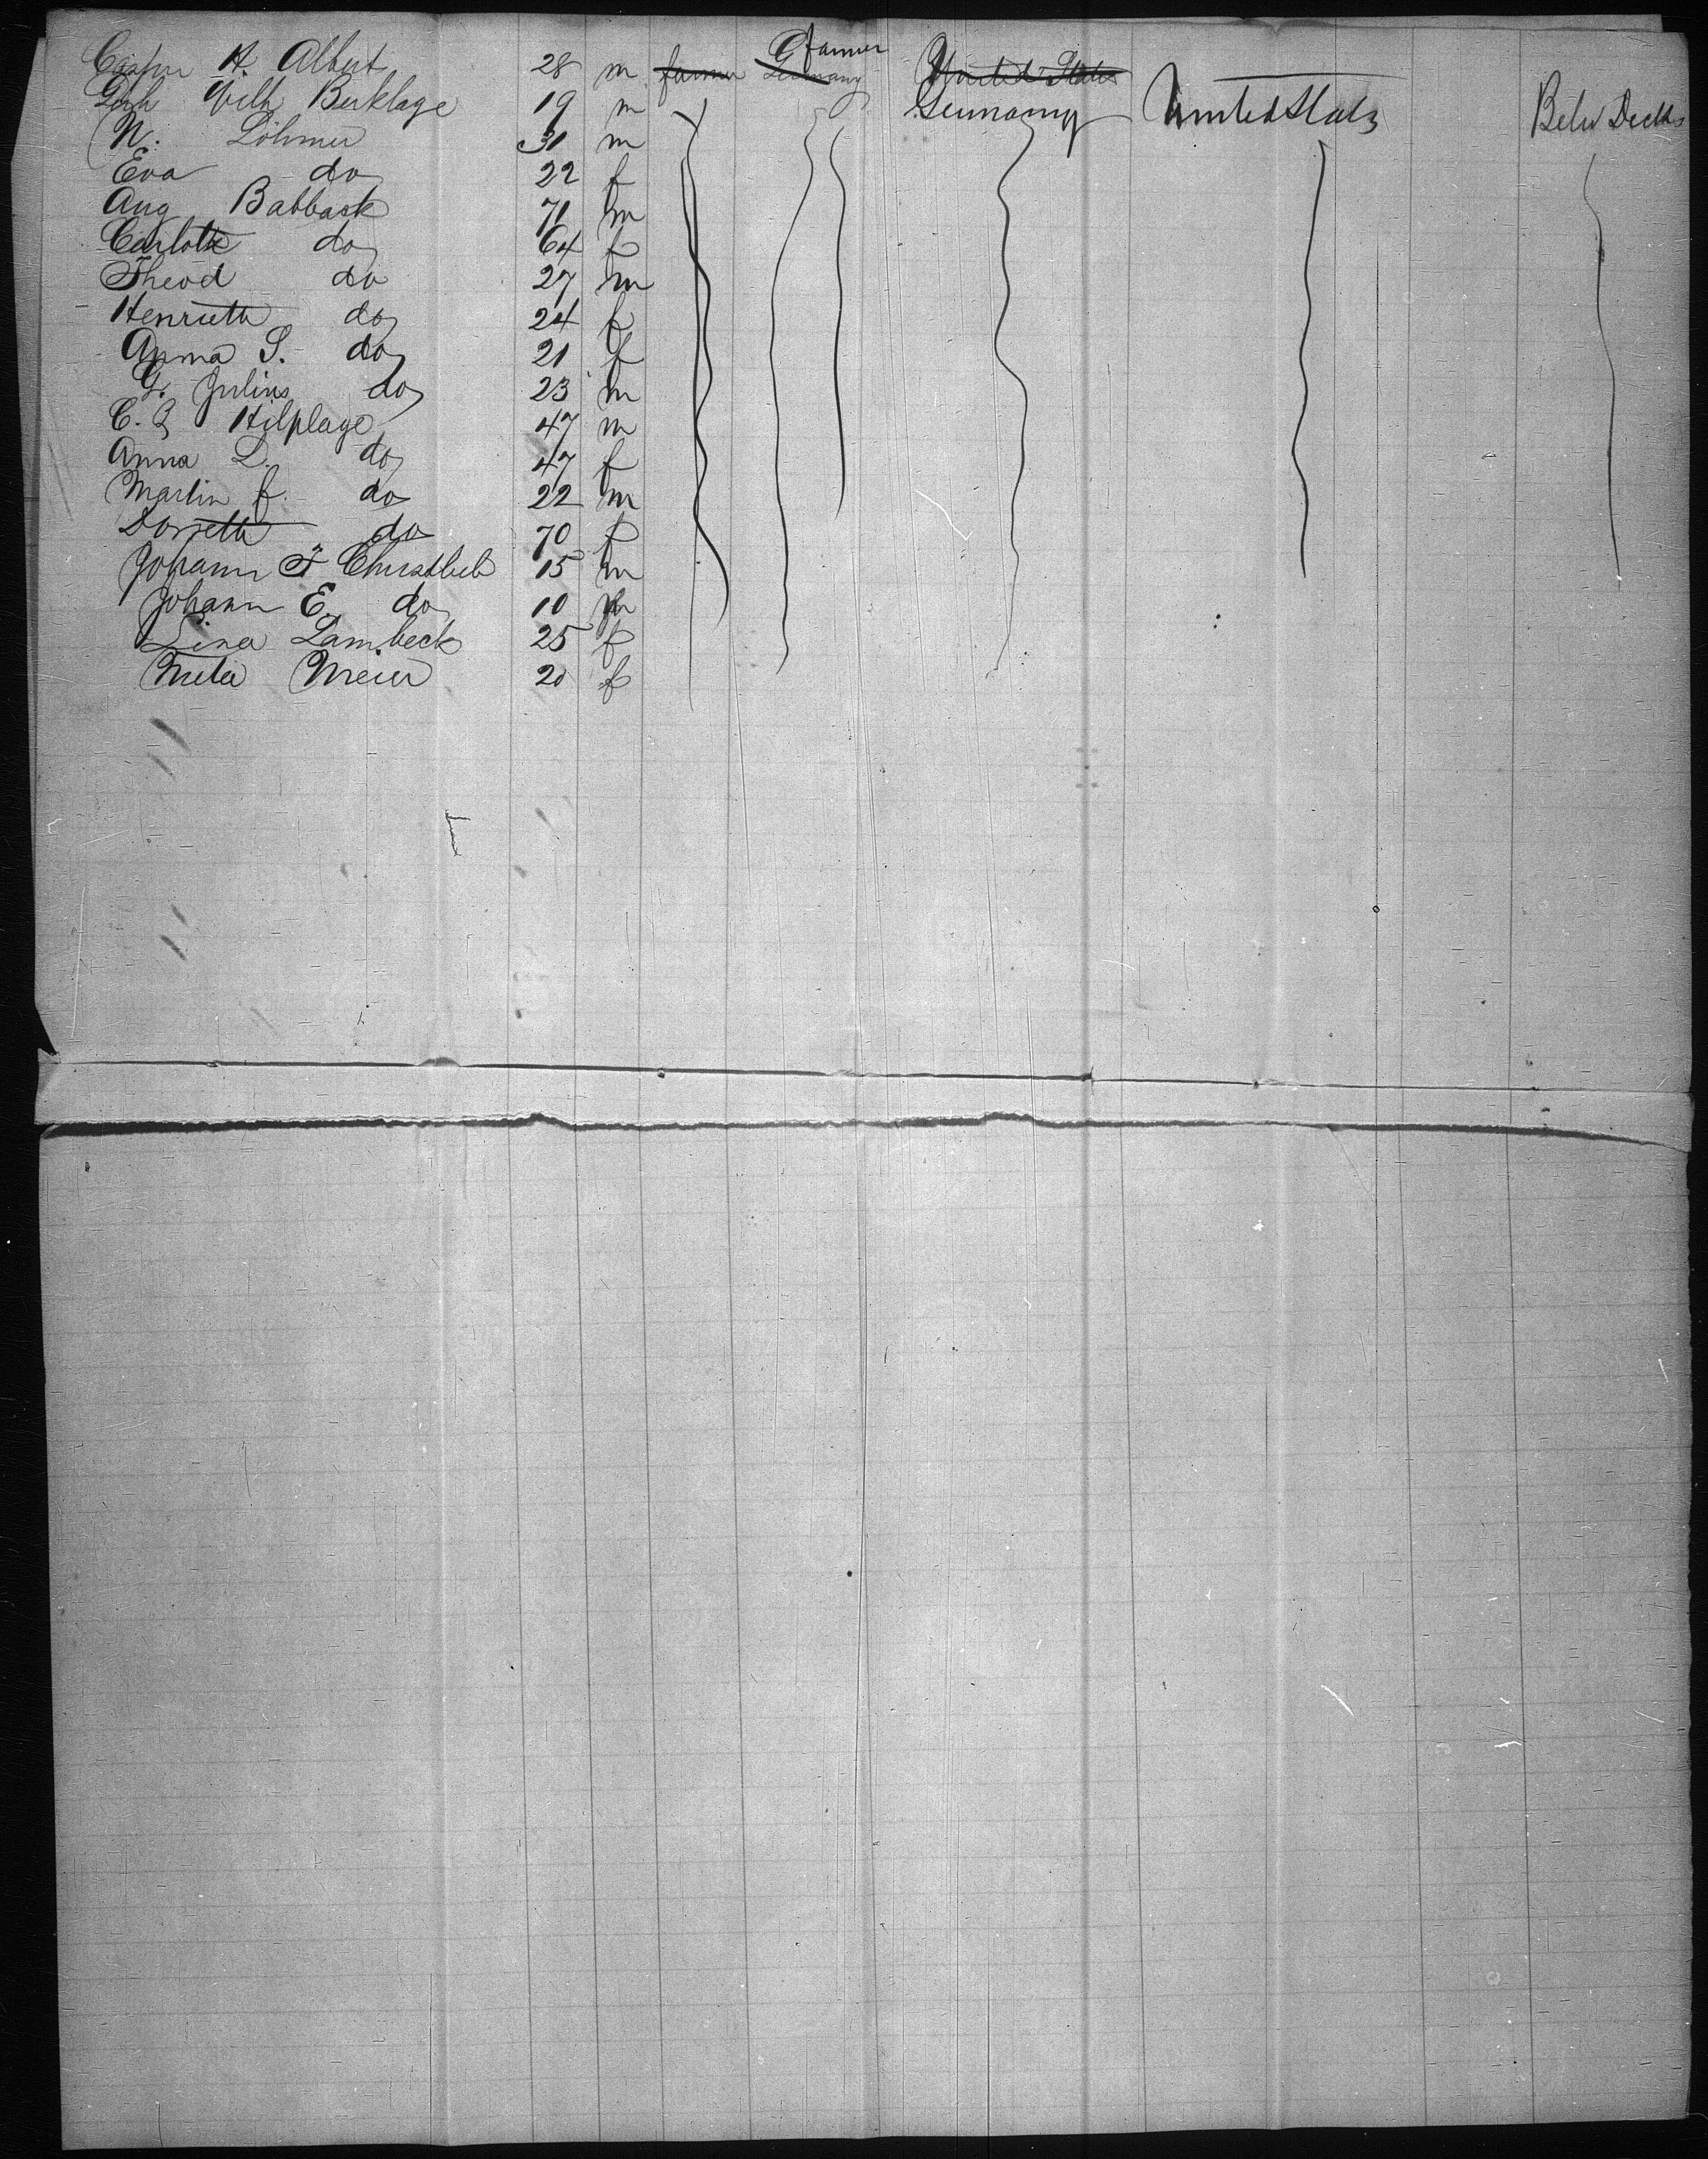 Casper H. Albert 28 m farmer Germany farmer United States
Gerh Wilh Berklage 19 m Germany United States Betw Decks
N. Löhmer 31 m
Eva do 22 f
Aug Babback 71 m
Carlotte do 64 f
Theod do 27 m
Henriette do 24 f
Anna S. do 21 f
G. Julius do 23 m
C. Hilplage 47 m
Anna L. do 47 f
Martin f. do 22 m
Dorette do 70 f
Johann F Christlieb 15 m
Johann E. do 10 m
Lina Lambeck 25 f
Meta Meier 20 f